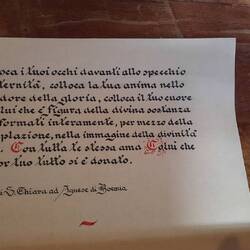 oca i tuoi occhi davanti allo specchio
ternità, colloca la tua anima nello
dore della gloria, colloca il tuo cuore
lui che è figura della divina sostanza
formati interamente, per mezzo della
plazione, nella immagine della divinità
. Con tutta te stessa ama Colui che
or tuo tutto si è donato.
i S. Chiara ad Agnese di Boemia